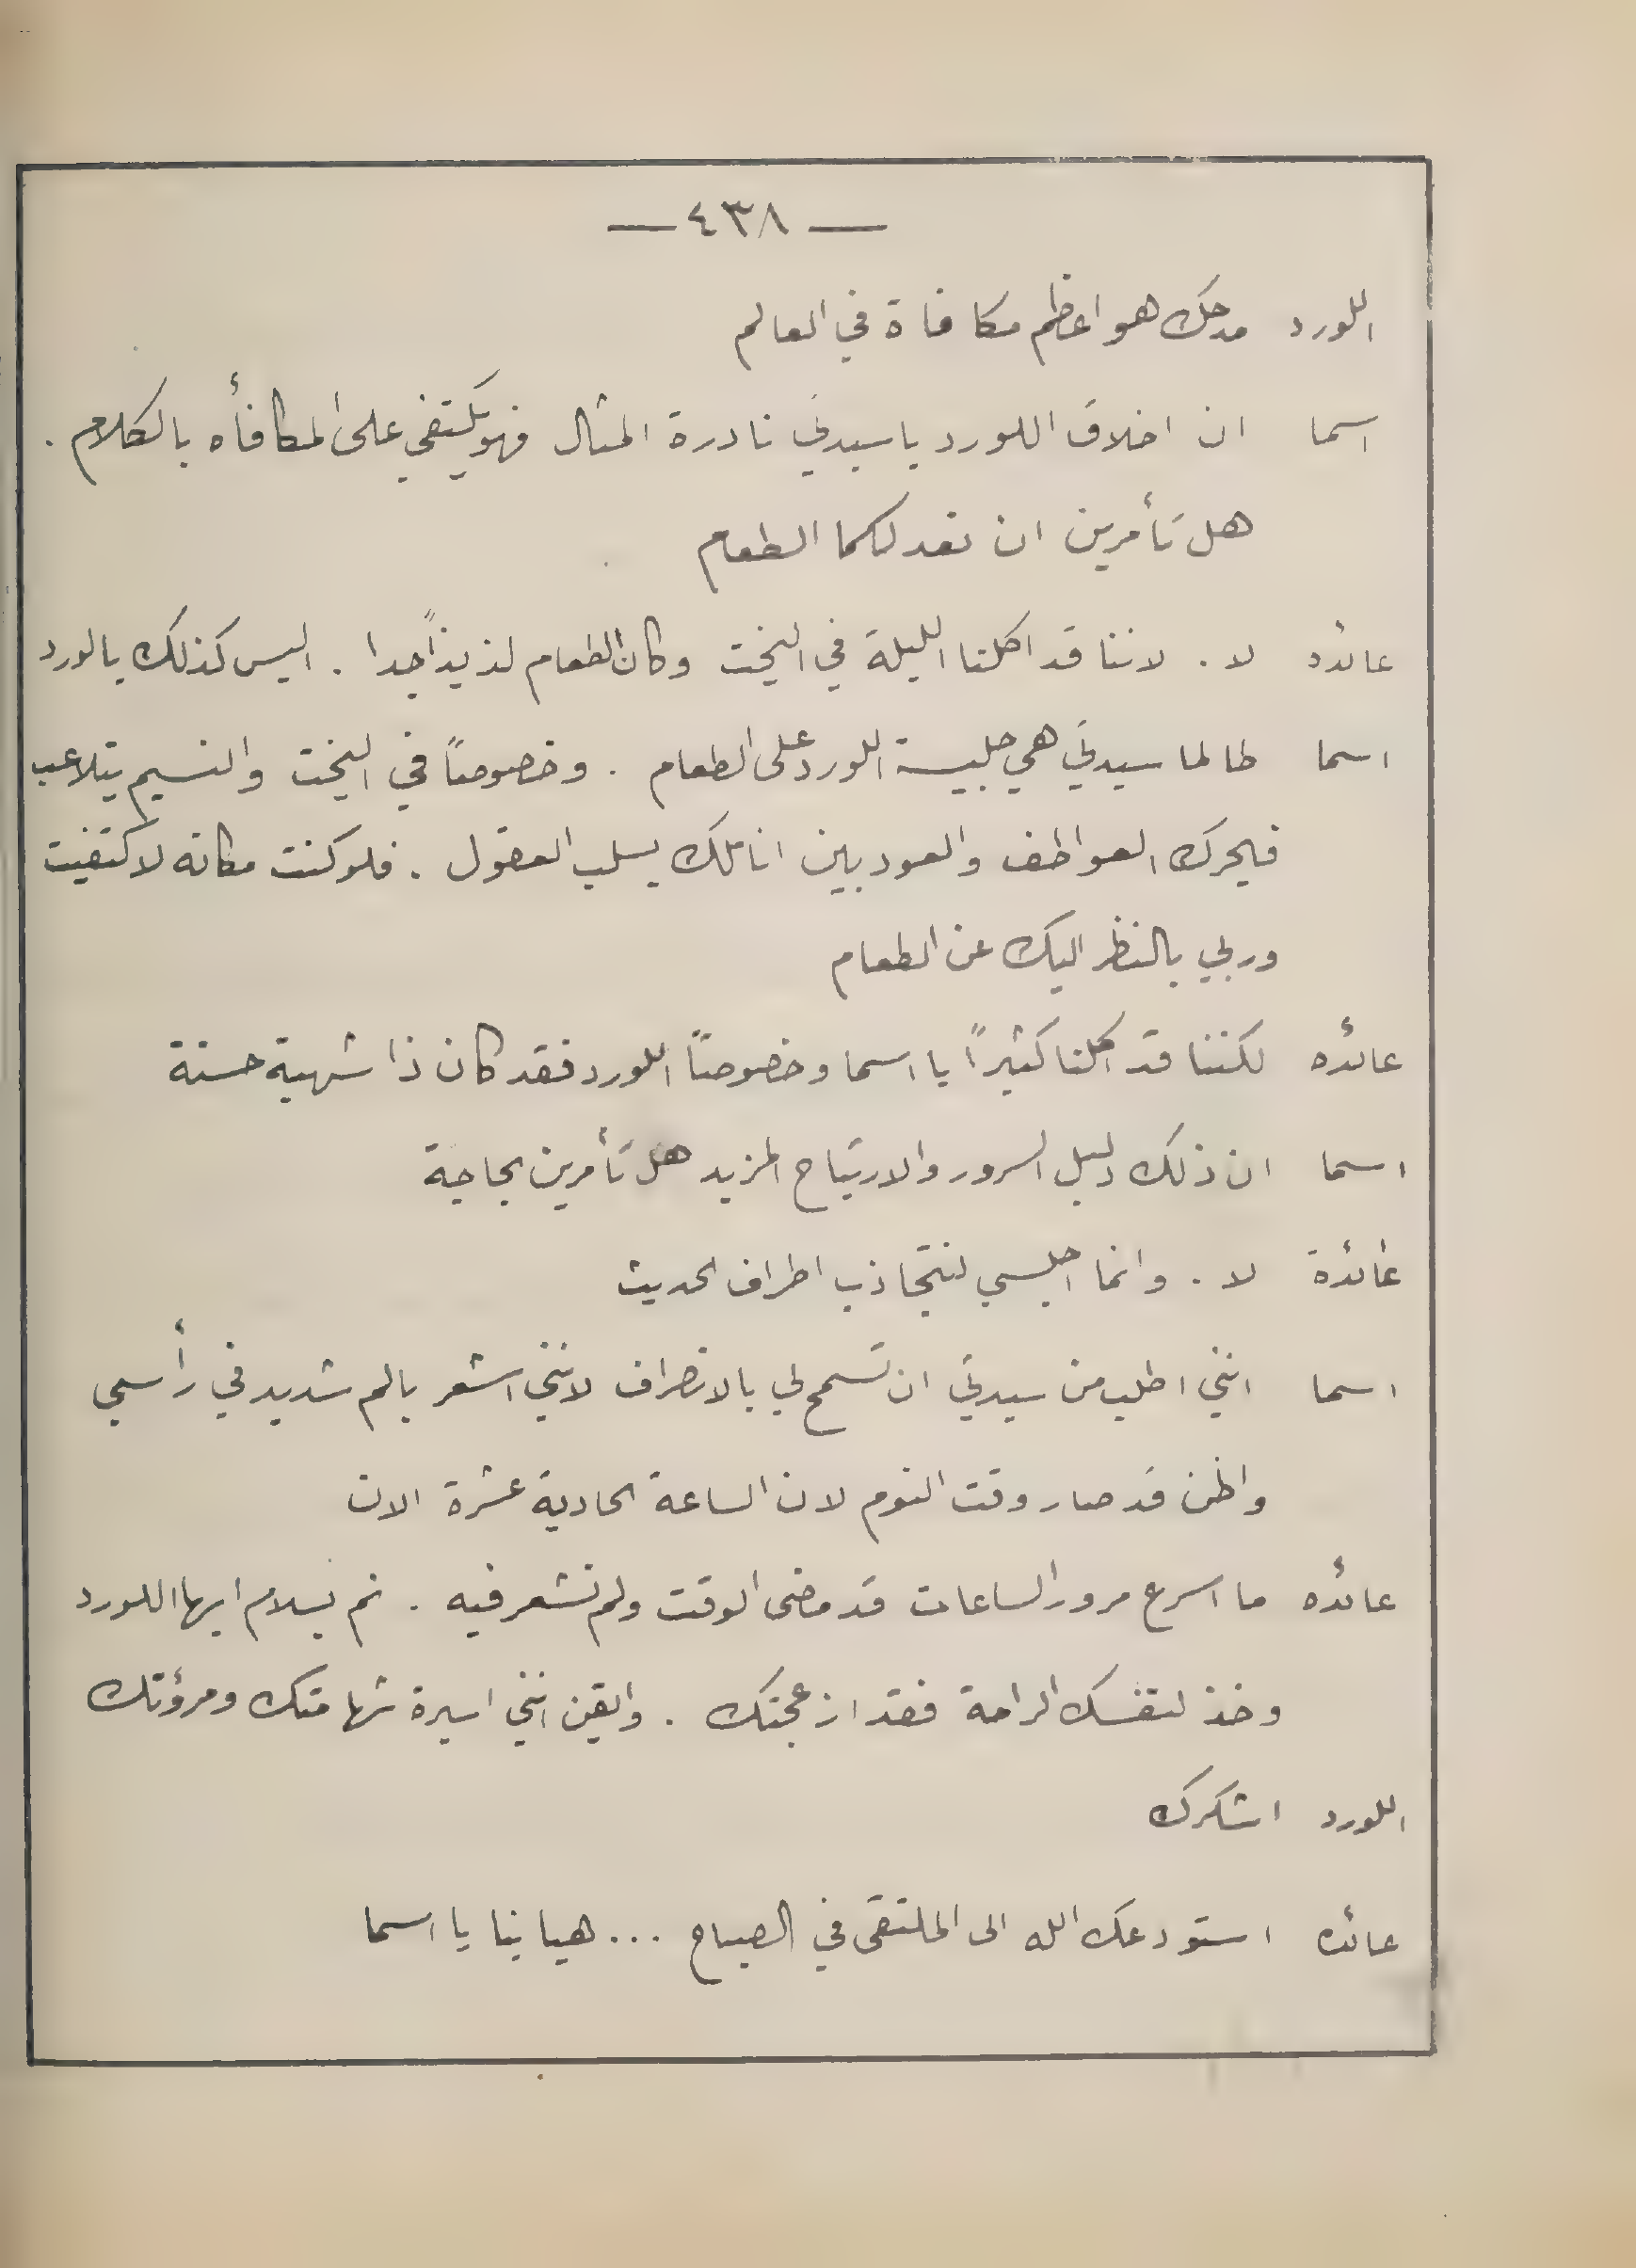 — ٤٣٨ —
اللورد مدحك هو اعظم مكافاة في العالم
اسما ان اخلاق اللورد يا سيدتي نادرة المثال فهو يكتفي على المكافأه بالكلام .
هل تأمرين ان نعد لكما الطعام
عائده لا . لاننا قد اكلنا الليلة في اليخت وكان الطعام لذيذاً جدا . اليس كذلك يالورد
اسما طالما سيدتي هي جليسة اللورد على الطعام . وخصوصاً في اليخت والنسيم يتلاعب
فيحرك العواطف والعود بين اناملك يسلب العقول . فلو كنت مكانه لاكتفيت
وربي بالنظر اليك عن الطعام
عائده لكننا قد اكلنا كثيراً يا اسما وخصوصاً اللورد فقد كان ذا شهية حسنة
اسما ان ذلك دليل السرور والارتياح المزيد هل تأمرين بحاجة
عائدة لا . وانما اجلسي لنتجاذب اطراف الحديث
اسما انني اطلب من سيدتي ان تسمح لي بالانصراف لانني اشعر بالم شديد في رأسي
واظن قد صار وقت النوم لان الساعة الحادية عشرة الان
عائده ما اسرع مرور الساعات قد مضى الوقت ولم نشعر فيه . نم بسلام ايها اللورد
وخذ لنفسك الراحة فقد ازعجتك . وايقن انني اسيرة شهامتك ومرؤتك
اللورد اشكرك
عائده استودعك الله الى الملتقى في الصباح ... هيا بنا يا اسما